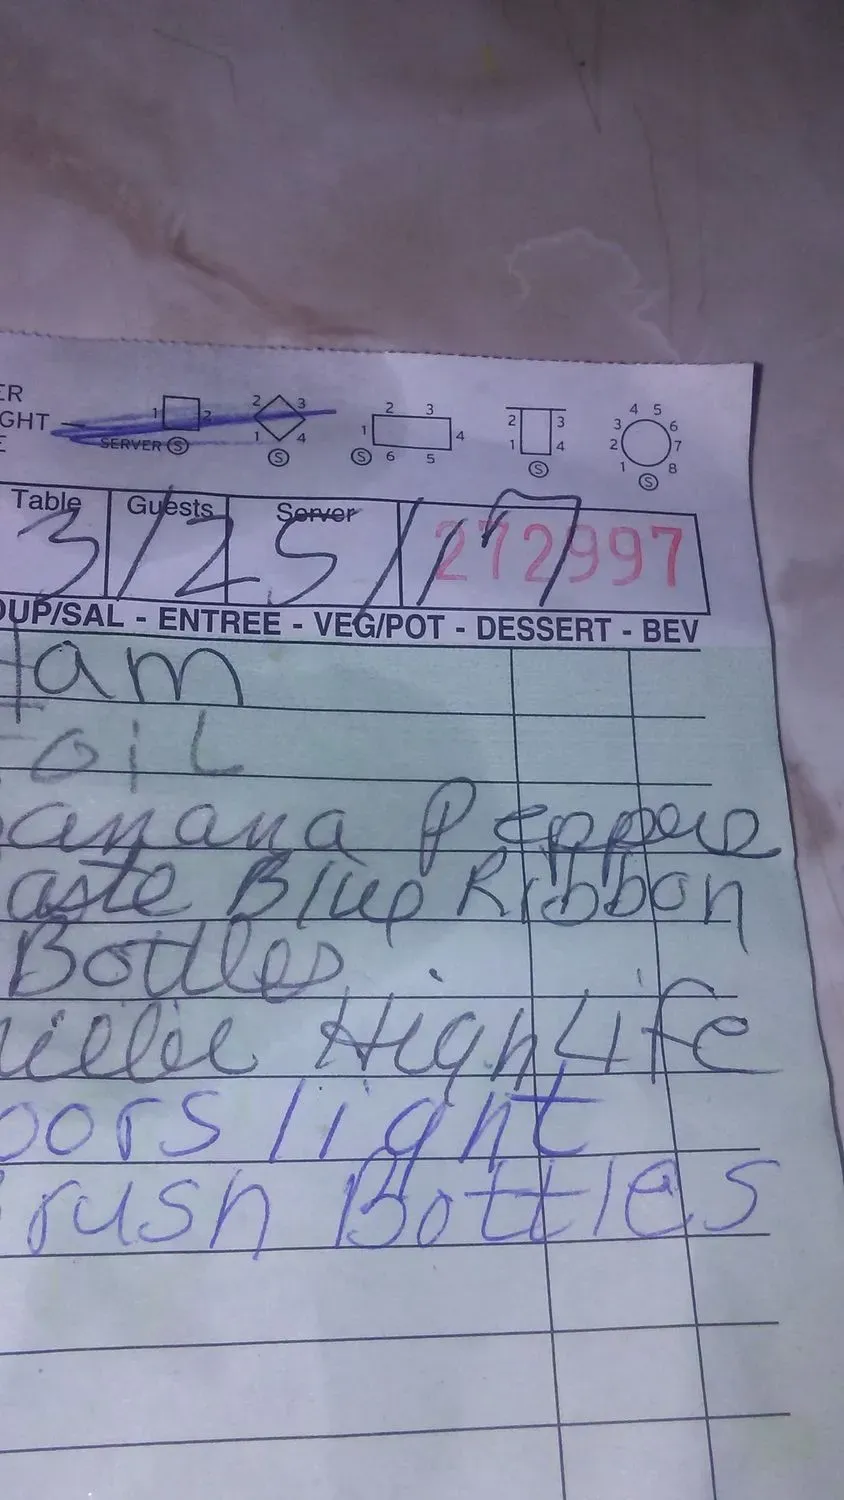 ER
GHT
E
1 2
SERVER S
2 3
1 4
S
2 3
1 4
S 6 5
2 3
1 4
S
4 5
3 6
2 7
1 8
S
Table Guests Server
3/25/17
272997
OUP/SAL - ENTREE - VEG/POT - DESSERT - BEV
Ham
Foil
Banana Peppers
aste Blue Ribbon
Bottles
High Life
oors light
rush Bottles